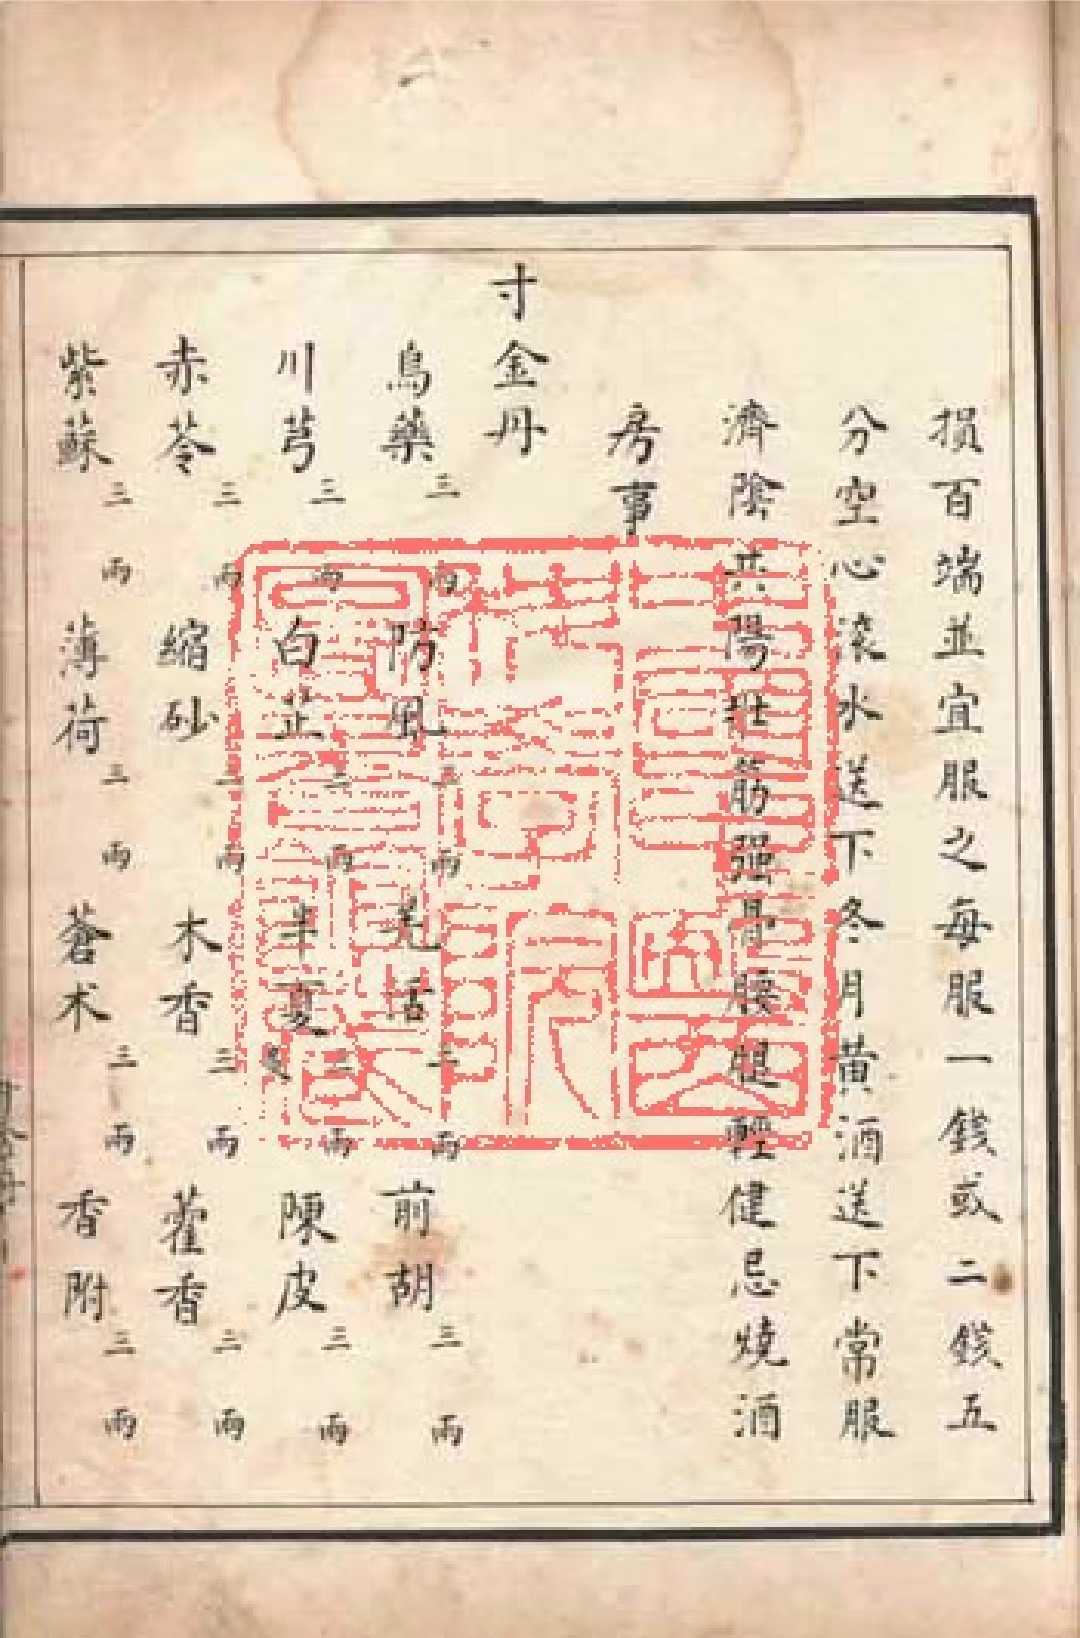 損百端並宜服之每服一錢或二錢五
分空心滚水送下冬月黄酒送下常服
濟陰共陽壯筋强骨腰腿輕健忌燒酒
房事
寸金丹
烏藥三两 防風三两 羌活三两 前胡三两
川芎三两 白芷三两 半夏三两 陳皮三两
赤苓三两 縮砂三两 木香三两 藿香三两
紫蘇三两 薄荷三两 蒼术三两 香附三两